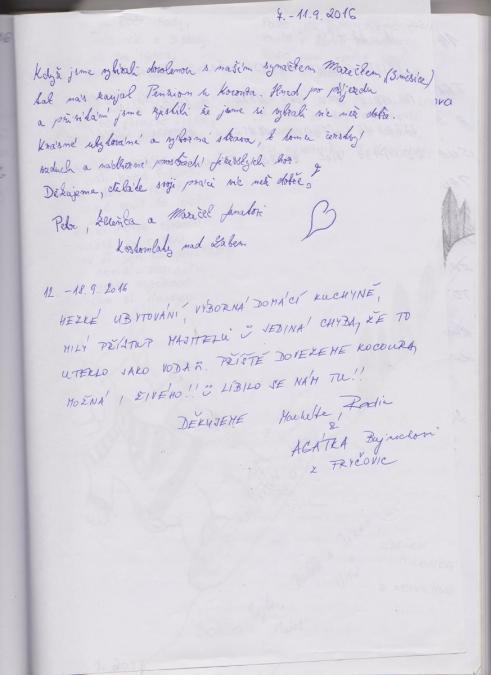 7. - 11.9. 2016
Když jsme vybírali dovolenou s naším synáčkem Marečkem (3 měsíce)
tak nás zaujal Penzion u Kocoura. Hned po příjezdu
a přivítání jsme zjistili že jsme si vybrali víc než dobře.
Krásné ubytování a výborná strava, k tomu čerstvý
vzduch a nádherné prostředí jizerských hor.
Děkujeme, děláte svoji práci víc než dobře!
Petr, Zdeňka a Mareček
Kostomlaty nad Labem
12. - 18.9. 2016
HEZKÉ UBYTOVÁNÍ, VÝBORNÁ DOMÁCÍ KUCHYNĚ,
MILÝ PŘÍSTUP MAJITELŮ JEDINÁ CHYBA, ŽE TO
UTEKLO JAKO VODA. PŘÍŠTĚ DOVEZEME KOCOURA,
MOŽNÁ I ŽIVÉHO!! LÍBILO SE NÁM TU!!
DĚKUJEME Markéta, Radim
&
AGÁTKA
z FRYČOVIC